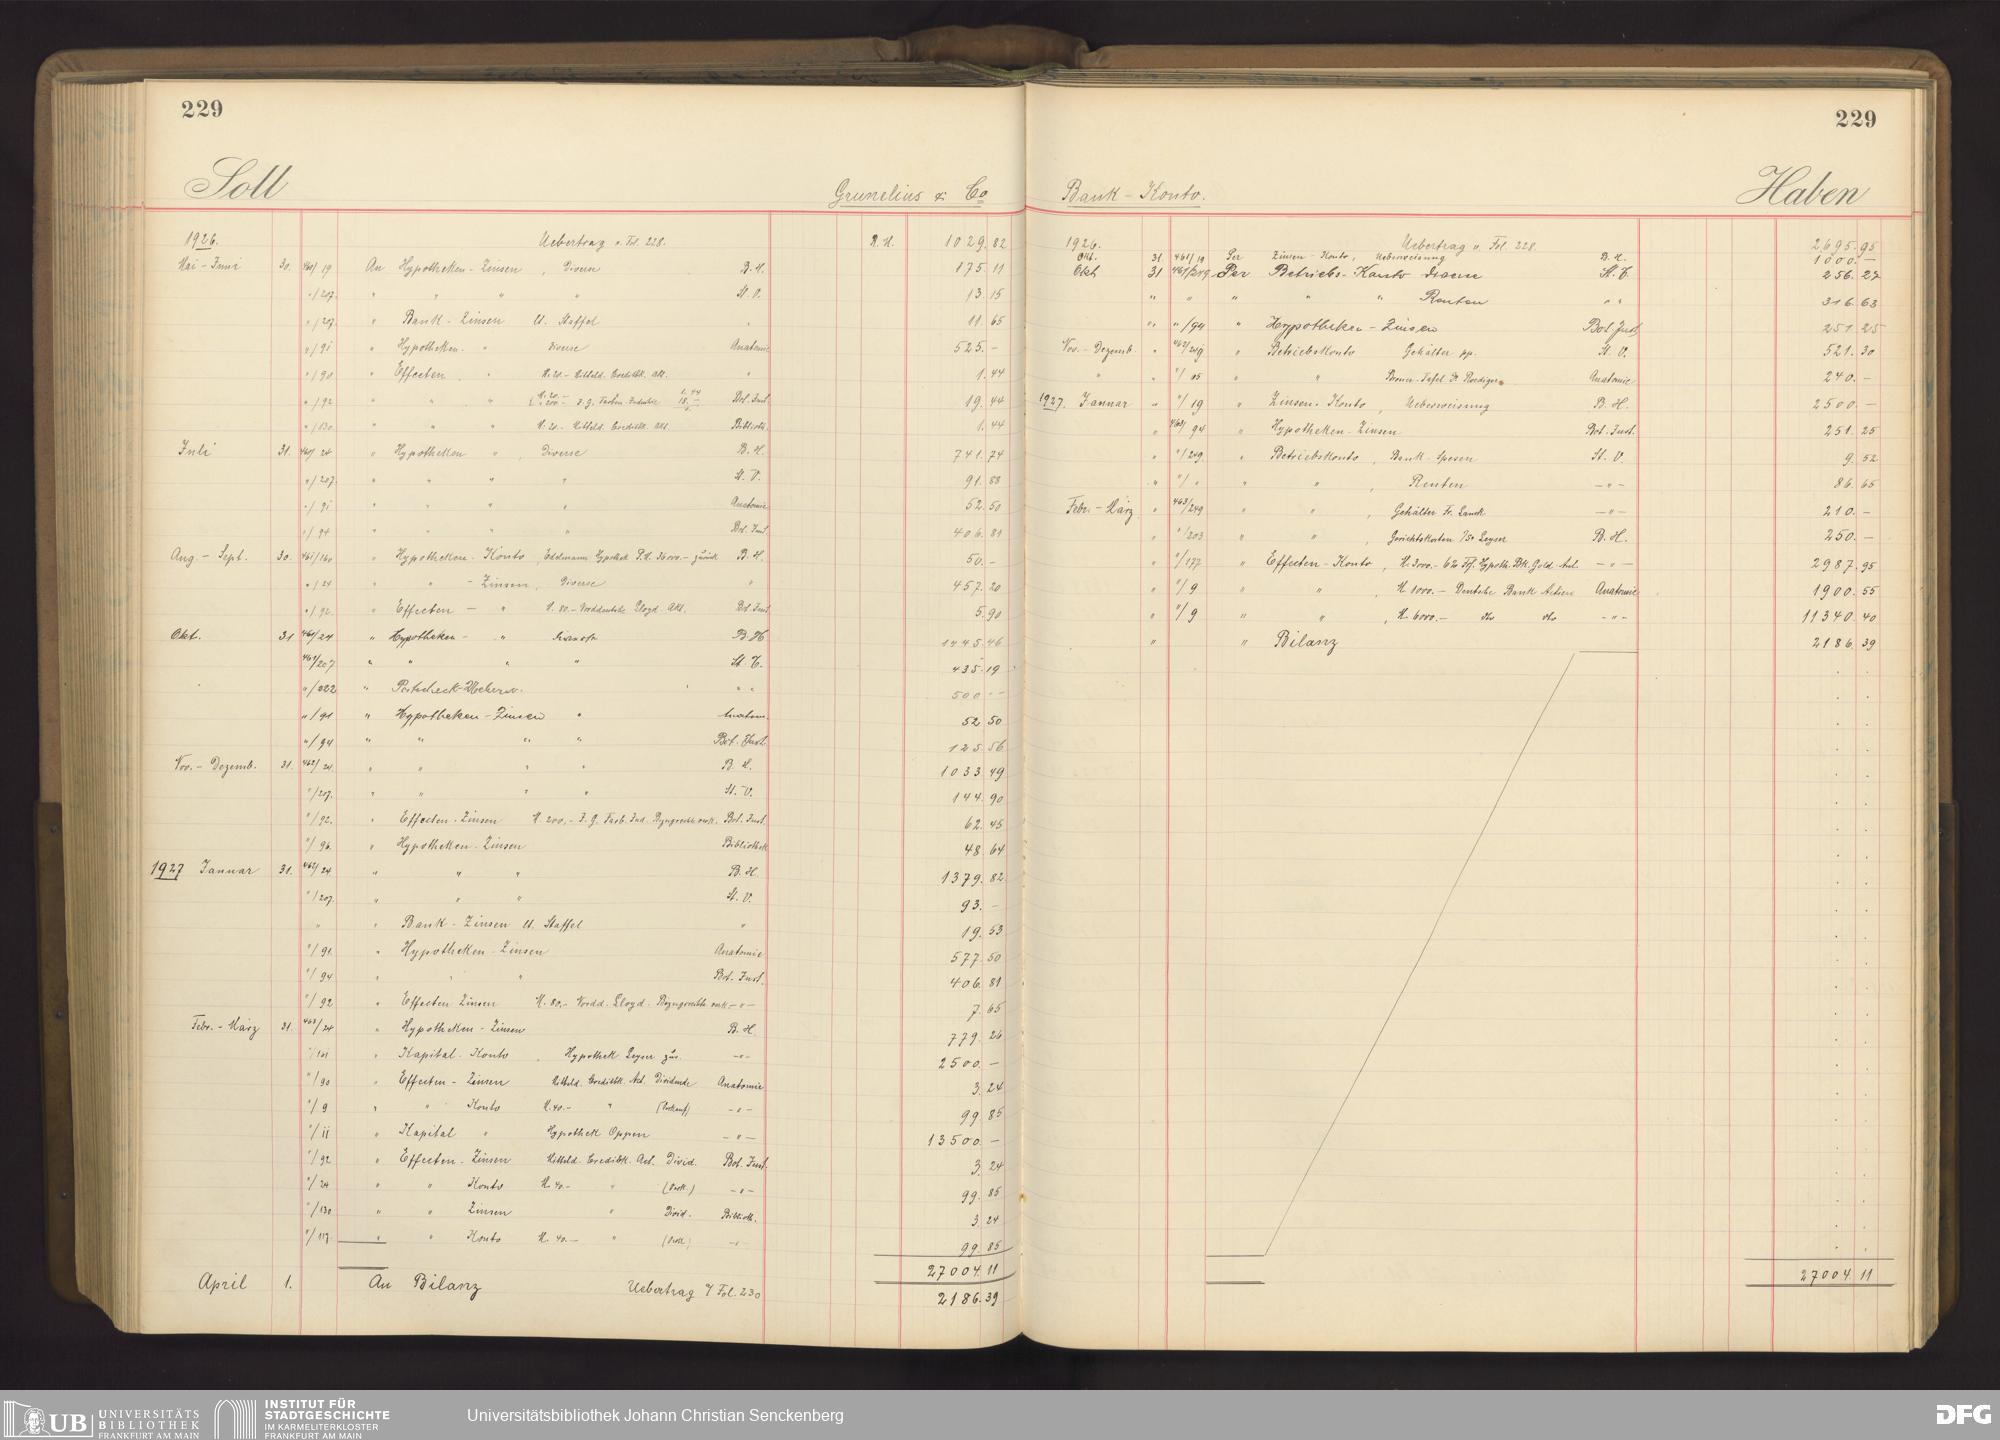 229
Soll
Grunelius & Co
1926. Uebertrag v. Fol. 228. R.M. 1029.82
Mai - Juni 30. 461/19 An Hypotheken - Zinsen, Diverse B.H. 175.11
"/207. " " " " St. V. 13.15
"/207. " Bank - Zinsen lt. Staffel " 11.65
"/91 " Hypotheken. " Diverse Anatomie 525.-
"/90 " Effecten " M. 20.- Mitteld. Creditbk. Akt. " 1.44
"/92 " " " M. 20.- 1.44 " 200.- I. G. Farben-Industrie 18.- Bot. Inst. 19.44
"/130. " " " M. 20.- Mitteld. Creditbk. Akt. Biblioth. 1.44
Juli 31. 461/24 " Hypotheken ", Diverse B. H. 741.74
"/207. " " " " St. V. 91.88
"/91 " " " " Anatomie 52.50
"/94 " " " " Bot. Inst. 406.81
Aug. - Sept. 30. 461/160 " Hypotheken - Konto, Edelmann Hypothek P.M. 36000.- zurück B. H. 50.-
"/24 " " - Zinsen, Diverse " 457.20
"/92. " Effecten - " M. 80.- Norddeutsche Lloyd. Akt. Bot. Inst. 5.90
Okt. 31 461/24 " Hypotheken - " Diverse B.H 1445.46
461/207 " " " " St. V. 435.19
"/222 " Postscheck-Ueberw. " " 500.--
"/91 " Hypotheken - Zinsen " Anatom. 52.50
"/94 " " " " Bot. Inst. 125.56
Nov. - Dezemb. 31. 462/24. " " " " B. H. 1033.49
"/207. " " " " St. V. 144.90
"/92. " Effecten - Zinsen M. 200.- I. G. Farb. Ind. Bezugsrechte verk. Bot. Inst. 62.45
"/96. " Hypotheken - Zinsen Bibliothek 48.64
1927 Januar 31. 462/24 " " " B. H. 1379.82
"/207. " " " St. V. 93.-
" " Bank - Zinsen lt. Staffel " 19.53
"/91. " Hypotheken - Zinsen Anatomie 577.50
"/94 " " " Bot. Inst. 406.81
"/92 " Effecten Zinsen M. 80.- Nordd. Lloyd. Bezugsrechte verk. - " - 7.65
Febr. - März 31. 463/24 " Hypotheken - Zinsen B. H. 779.26
"/101 " Kapital - Konto, Hypothek Leyser zur. - " - 2500.-
"/90 " Effecten - Zinsen Mitteld. Creditbk. Act. Dividende Anatomie 3.24
"/9 " " Konto M. 40.- " (Verkauf) - " - 99.85
"/11 " Kapital " Hypothek Oppen - " - 13500.-
"/92 " Effecten - Zinsen Mitteld. Creditbk. Act. Divid. Bot. Inst. 3.24
"/24 " " Konto M. 40.- " (Verk.) - " - 99.85
"/130 " " Zinsen " Divid. Biblioth. 3.24
"/117. " " Konto M. 40.- " (Verk.) - " - 99.85
27004.11
April 1. An Bilanz Uebertrag a/ Fol. 230 2186.39
229
Bank - Konto.
Haben
1926. Uebertrag v. Fol. 228. 2695.95
Okt. 31. 461/19 Per Zinsen - Konto, Ueberweisung B. H. 1000.-
Okt 31 461/249. Per Betriebs - Konto diverse St. V. 256.27
" " " " " Renten " " 316.63
" "/94 " Hypotheken - Zinsen Bot. Inst. 251.25
Nov. - Dezemb. " 462/249 " Betriebskonto Gehälter pp. St. V. 521.30
" " "/85 " " Bronce-Tafel Dr Roediger Anatomie 240.-
1927. Januar " "/19 " Zinsen - Konto, Ueberweisung B. H. 2500.-
" 462/94 " Hypotheken - Zinsen Bot. Inst. 251.25
" "/249. " Betriebskonto, Bank - Spesen St. V. 9.52
" "/" " " , Renten - " - 86.65
Febr. - März " 463/249 " " , Gehälter Fr. Lauck - " - 210.-
" "/203 " " , Gerichtskosten Leyser B. H. 250.-
" "/177 " Effecten - Konto, M. 3000.- 6% Frf. Hypoth. Bk. Gold. Anl. - " - 2987.95
" "/9 " " , M. 1000.- Deutsche Bank Actien Anatomie 1900.55
" "/9 " " , M. 6000.- dto dto - " - 11340.40
" " Bilanz 2186.39
27004.11
UB UNIVERSITÄTS BIBLIOTHEK FRANKFURT AM MAIN
INSTITUT FÜR STADTGESCHICHTE IM KARMELITERKLOSTER FRANKFURT AM MAIN
Universitätsbibliothek Johann Christian Senckenberg
DFG